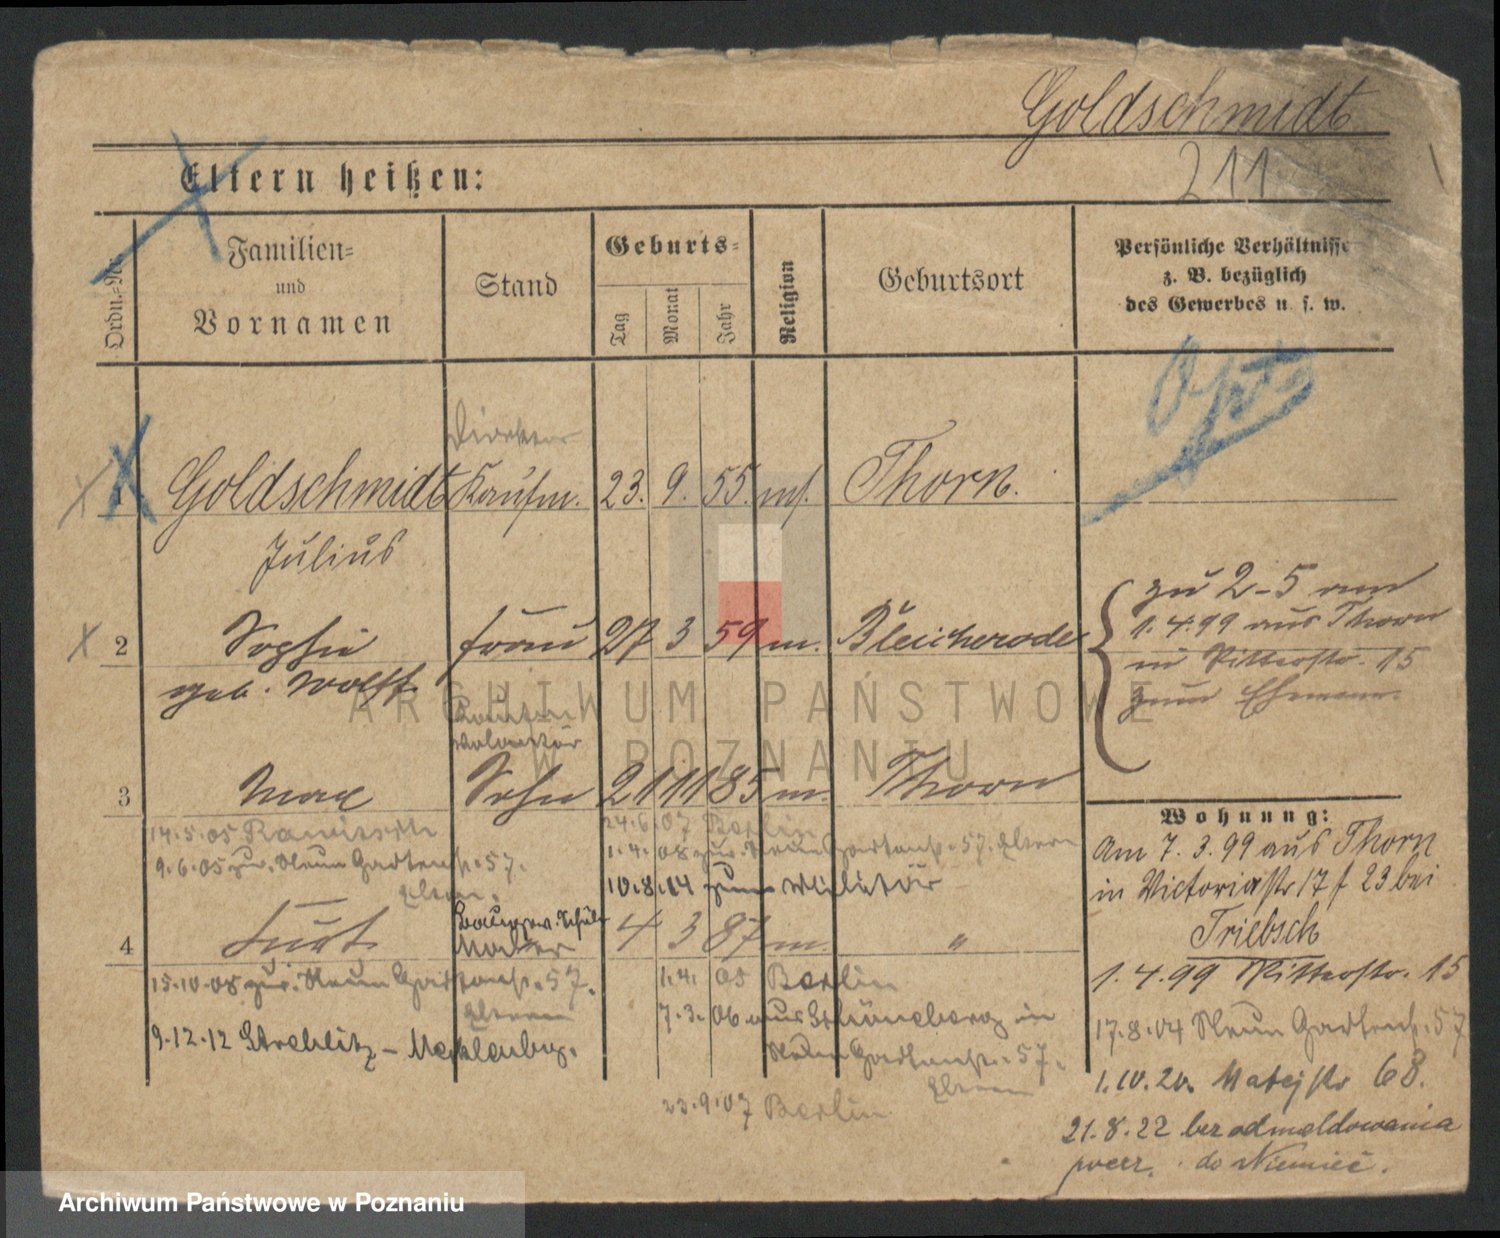 Goldschmidt
211
Eltern heißen:
Ordn.=Nr.
Familien=
und
Vornamen
Stand
Geburts=
Tag
Monat
Jahr
Religion
Geburtsort
Persönliche Verhältnisse
z. B. bezüglich
des Gewerbes u. s. w.
Opt
Direktor
1 Goldschmidt Kaufm. 23. 9. 55. mos. Thorn.
Julius
2 Sophie Frau 27 3 59 m. Bleicherode
geb. Wolff.
zu 2-5 am
1.4.99 aus Thorn
in Ritterstr. 15
zum Ehemann.
Volontär
3 Max Sohn 21 11 85 m. Thorn
14.5.05 Rawitsch
9.6.05 zur. Neue Gartenstr. 57.
Eltern.
24.6.07 Berlin
1.4.08 zur. Neue Gartenstr. 57. Eltern
10.8.14 zum Militär
Baugew. Schüler
4 Kurt Maler 4 3 87 m. "
15.10.08 zur. Neue Gartenstr. 57.
Eltern
9.12.12 Strelitz - Mecklenbg.
1.4. 05 Berlin
7.3.06 aus Schöneberg in
Neue Gartenstr. 57.
Eltern
23.9.07 Berlin
Wohnung:
Am 7.3.99 aus Thorn
in Victoriastr 17 f 23 bei
Triebsch
1.4.99 Ritterstr. 15
17.8.04 Neue Gartenstr. 57
1.10.20. Matejki 68.
21.8.22 bez odmeldowania
wecz. do Niemiec.
ARCHIWUM PAŃSTWOWE
W POZNANIU
Archiwum Państwowe w Poznaniu